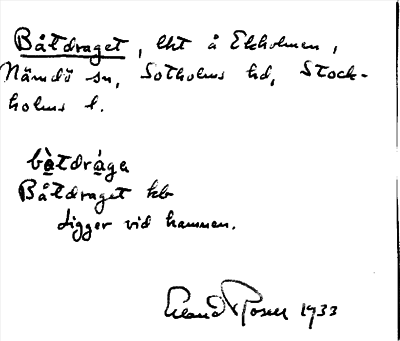 Båtdraget, lht å Ekholmen,
Nämdö sn, Sotholms hd, Stock-
holms l.
bàtdrága
Båtdraget kb
Ligger vid hamnen.
Erland Rosell 1933